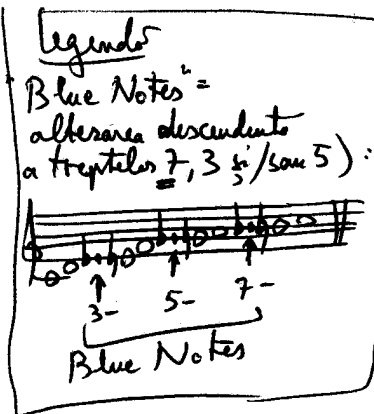 Legendă
"Blue Notes" =
alterarea descendentă
a treptelor 7, 3 și/sau 5):
3- 5- 7-
Blue Notes